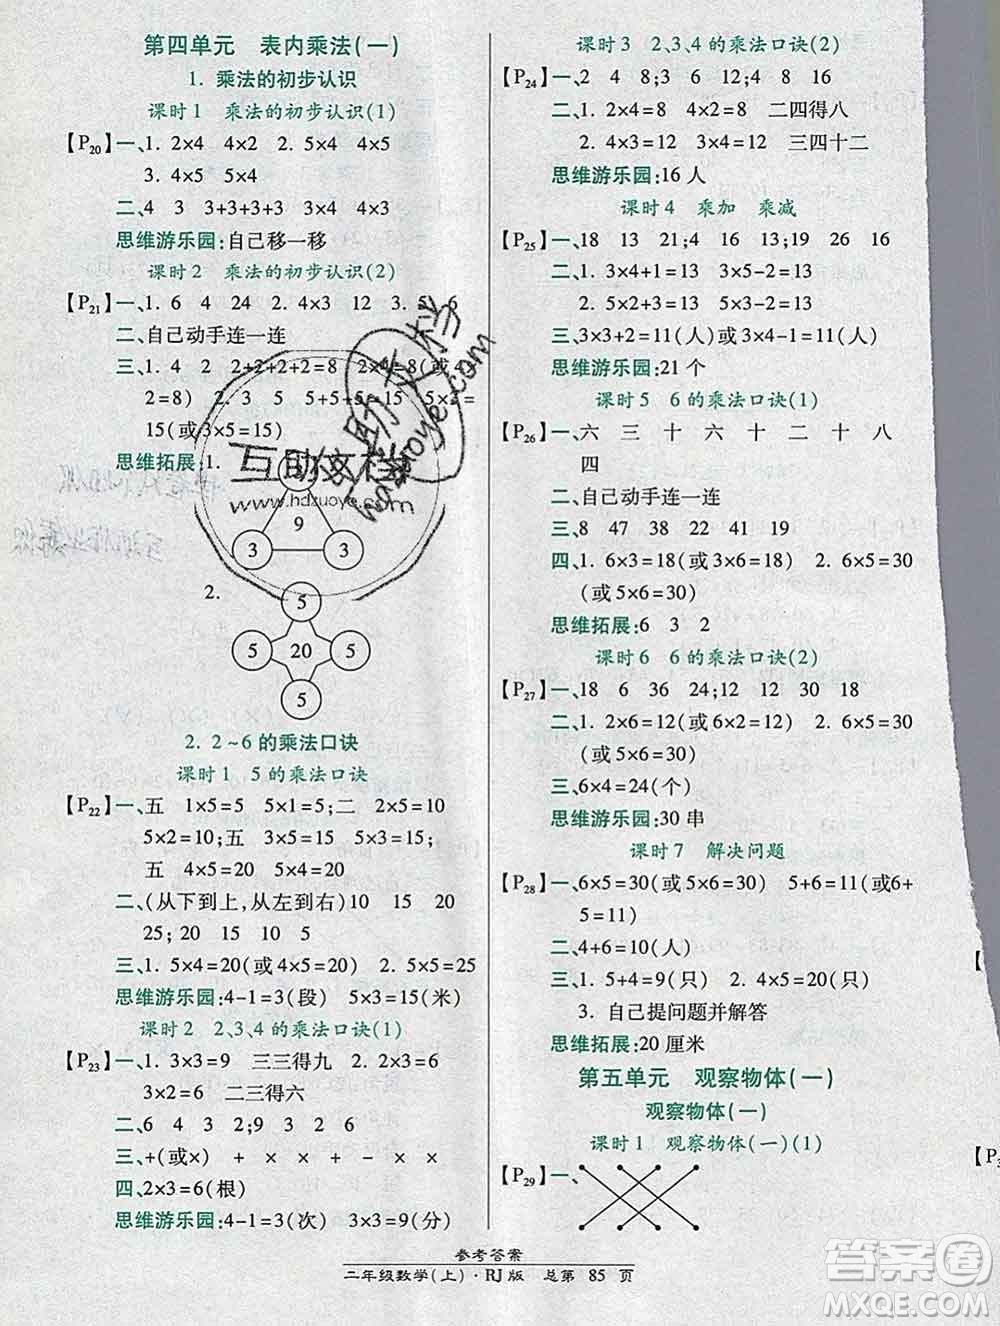 第四单元 表内乘法(一)
1. 乘法的初步认识
课时1 乘法的初步认识(1)
【P20】一、1. 2×4 4×2 2. 5×4 4×5
3. 4×5 5×4
二、4 3 3+3+3+3 3×4 4×3
思维游乐园:自己移一移
课时2 乘法的初步认识(2)
【P21】一、1. 6 4 24 2. 4×3 12 3. 5 6
二、自己动手连一连
三、1. 4 2 2+2+2+2=8 2×4=8(或4×
2=8) 2. 3 5 5+5+5=15 5×3=
15(或3×5=15)
思维拓展:1.
3
9
3 3
2.
5
5 20 5
5
2. 2~6的乘法口诀
课时1 5的乘法口诀
【P22】一、五 1×5=5 5×1=5;二 2×5=10
5×2=10;五 3×5=15 5×3=15;
五 4×5=20 5×4=20
二、(从下到上,从左到右)10 15 20
25; 50 20 25 15
三、1. 5×4=20(或4×5=20) 2. 5×5=25
思维游乐园:4-1=3(段) 5×3=15(米)
课时2 2、3、4的乘法口诀(1)
【P23】一、1. 3×3=9 三三得九 2. 2×3=6
3×2=6 二三得六
二、6 4 3 2 9 3 2 6
三、+(或×) × × + × + - ×
四、2×3=6(根)
思维游乐园:4-1=3(次) 3×3=9(分)
课时3 2、3、4的乘法口诀(2)
【P24】一、2 4 8;3 6 12;4 8 16
二、1. 2×4=8 4×2=8 二四得八
2. 4×3=12 3×4=12 三四十二
思维游乐园:16人
课时4 乘加 乘减
【P25】一、18 13 21;4 16 13 9 16
二、1. 4×3+1=13 4×4-3=13
2. 5×2+3=13 5×3-2=13
三、3×3+2=11(人)或3×4-1=11(人)
思维游乐园:21个
课时5 6的乘法口诀(1)
【P26】一、六 三 十 六 十 二 十 八
四
二、自己动手连一连
三、8 47 38 22 41 19
四、1. 6×3=18(或3×6=18) 2. 6×5=30
(或5×6=30)
思维拓展:6 3 2
课时6 6的乘法口诀(2)
【P27】一、18 6 36 24;12 12 30 18
二、1. 2×6=12(或6×2=12) 2. 6×5=30
(或5×6=30)
三、6×4=24(个)
思维游乐园:30串
课时7 解决问题
【P28】一、6×5=30(或5×6=30) 5+6=11(或6+
5=11)
二、4+6=10(人)
三、1. 5+4=9(只) 2. 4×5=20(只)
3. 自己提问题并解答
思维拓展:20厘米
第五单元 观察物体(一)
观察物体(一)
课时1 观察物体(一)(1)
【P29】一、
参考答案
二年级数学(上)·RJ版 总第 85 页
互助文档
www.hdzuoye.com
答案圈
MXQE.COM